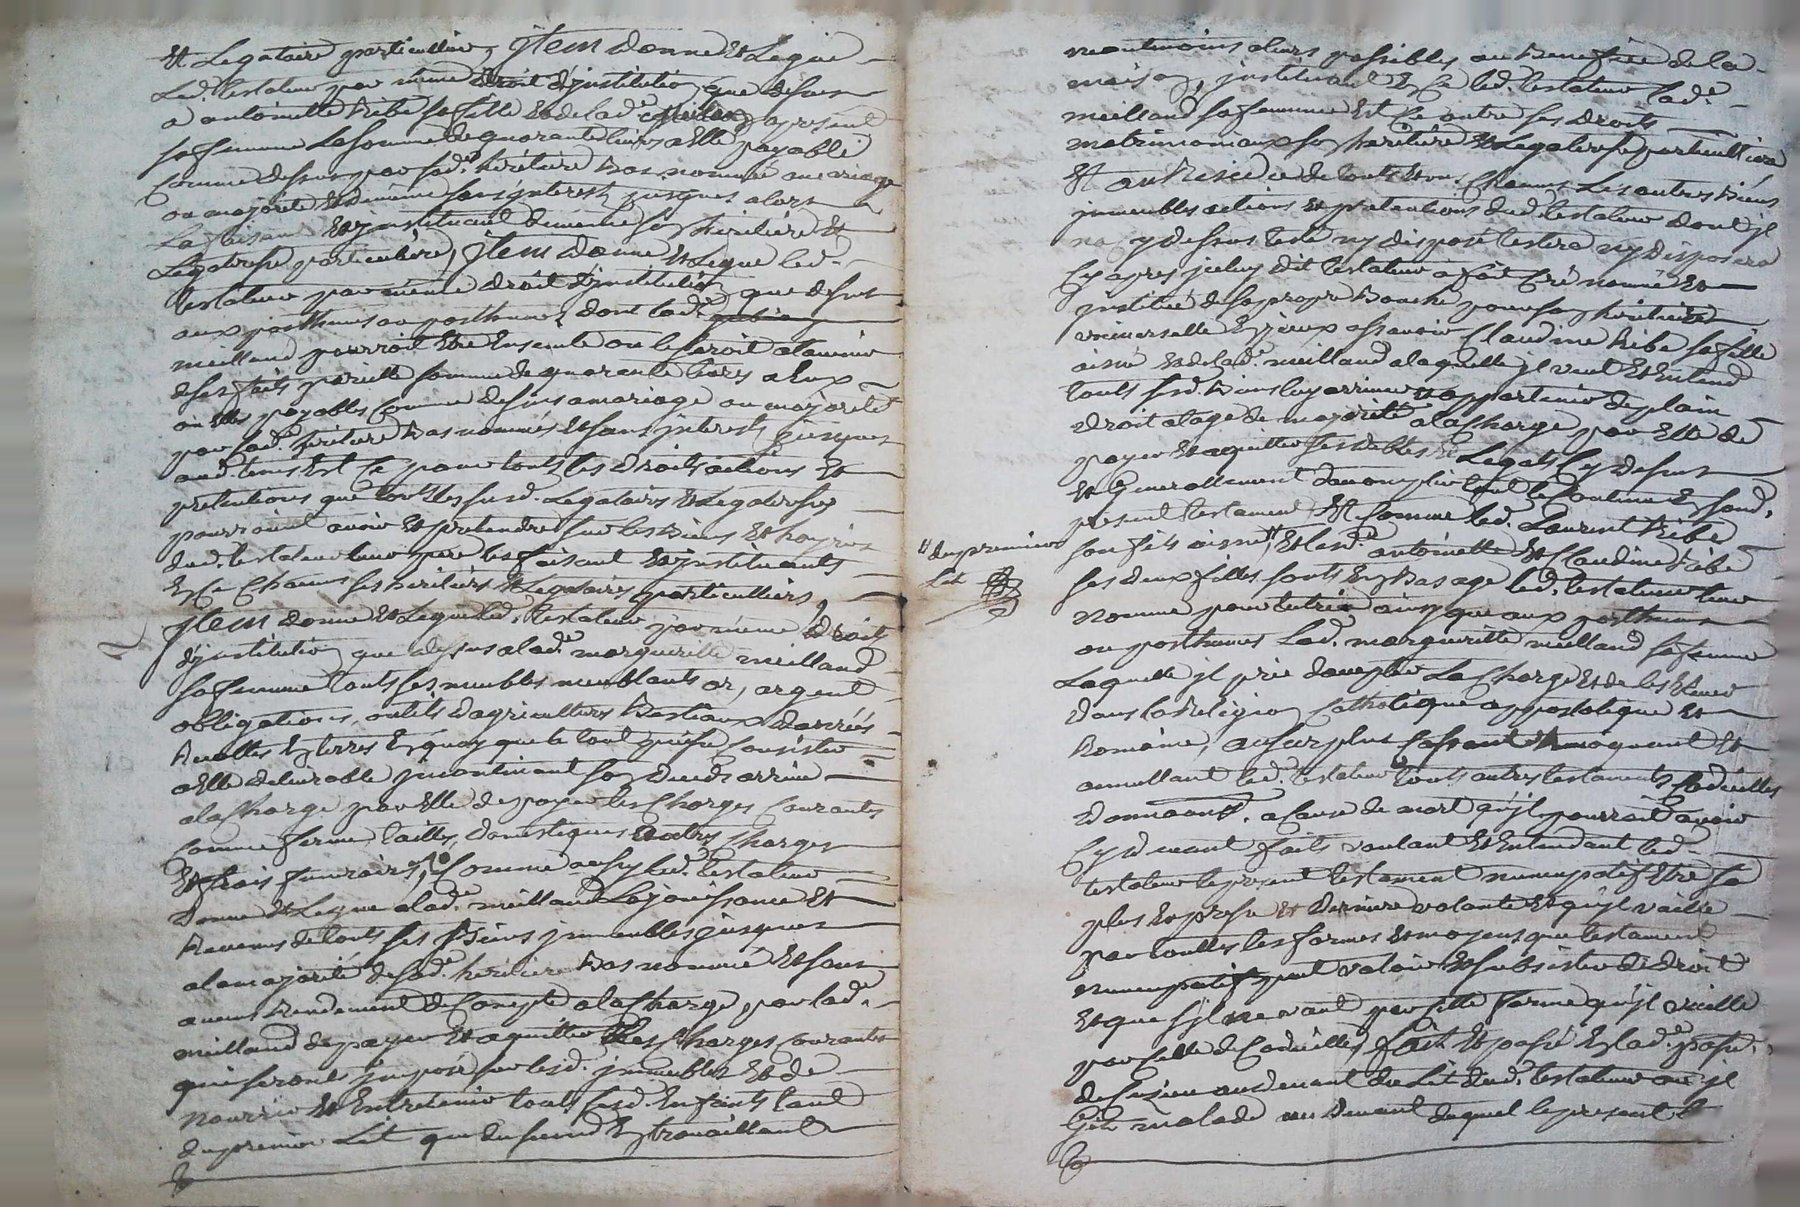 Et Legataire particullier, Jtem donne Et Legue
Led. testateur par même droit d'jnstitution que dessus
a antoinette Ribe sa fille Et de lad.e meilland apresent
sa femme La somme de quarante livres a Elle payable
Comme dessus par sad.e héritière bas nommée au mariage
ou majorité Et de même sans jnterest jusques alors
La faisant Et jnstituant de même son héritière Et
Legateresse particuliere, Jtem donne Et Legue led.
testateur par même droit d'jnstitution que dessus
aux posthumes ou posthume, dont lad.e
meilland pourroit Etre Enceinte ou le seroit alavenir
de ses faits pareille somme de quarante livres a Eux
ou Elle payables Comme dessus a mariage ou majorité
par sad.e héritière bas nommée Et sans jnterest jusques
aud. tems Est Ce pour touts les droits actions Et
pretentions que touts les susd. Legataires Et Legateresses
pourroient avoir Et pretendre sur les biens Et hoyries
dud. testateur leur pere les faisant Et jnstituants
En Ce Chacuns ses heritiers Et Legataires particulliers,
Jtem donne Et Legue led. testateur par même droit
d'jnstitution que dessus a lad.e margueritte meilland
sa femme touts ses meubles meublants or, argent
obligations, outils d'agriculture Bestiaux danrées
Recoltes En terres En quoy que le tout puisse Consister
a Elle delivrable jncontinant son deceds arrivé
a la Charge par Elle de payer les Charges Courantes
Comme ferme tailles, domestiques Et autres Charges
Et frais funeraires, Comme aussy led. testateur
donne Et Legue a lad.e meilland La jouissance Et
Revenus de touts ses Biens jmmeubles jusques
a la majorité de sad.e héritière bas nommée Et sans
aucun Rendement de Compte a la Charge, par lad.e
meilland de payer Et aquitter les Charges Courantes
qui seront jmposé sur lesd. jmmeubles Et de
nourrir Et Entretenir touts sesd. Enfants tant
du premier Lit que du second En travaillant
neantmoins alors possibles au Benefice de la
maison, jnstituant En Ce led. testateur lad.e
meilland sa femme Et Ce outre ses droits
matrimoniaux son héritière Et Legateresse particulliere
Et au Residu de touts Et uns Chacuns Les autres Biens
jmmeubles actions Et pretentions dud. testateur dont jl
na cy dessus testé ny disposé testera ny disposera
Cy apres jceluy dit testateur a fait Créé nommé Et
jnstitué de sa propre Bouche pour son héritière
universelle En jceux assavoir Claudine Ribe sa fille
aisné Et de lad.e meilland a laquelle jl veut Et Entend
touts sesd. Biens luy arriver Et appartenir de plain
droit a lage de majorité a la Charge par Elle de
payer Et aquitter ses debtes Et Legats Cy dessus
Et Generallement d'accomplir tout le Contenu En sond.
present testament, Et Comme led. Laurent Ribe
son fils aisné ,, Et lesd.e antoinette Et Claudine Ribe
,, du premier
Lit
ses deux filles sonts En Bas age led. testateur leur
nomme pour tutrice ainsy que aux posthumes
ou posthumes Lad.e marguerritte meilland sa femme
Laquelle jl prie d'accepter La Charge Et de les Elever
dans la Religion Catholique appostolique Et
Romaine, au surplus Cassant Revoquant Et
annullant led. testateur touts autres testaments Codicilles
donnaons. a Cause de mort qu'jl pourroit avoir
Cy devant faits voulant Et Entendant led.
testateur le present testament nuncupatif Etre sa
plus Expresse Et derniere volonté Et qu'jl vaille
par touttes les formes Et moyens que testament
nuncupatif peut valoir Et subsister de droit
Et que s'jl ne vaut par cette forme qu'jl vaille
par Celle de Codicilles, fait Et passé En lad.e
au devant du Lit dud. testateur ou jl
Git malade au Devant duquel le present